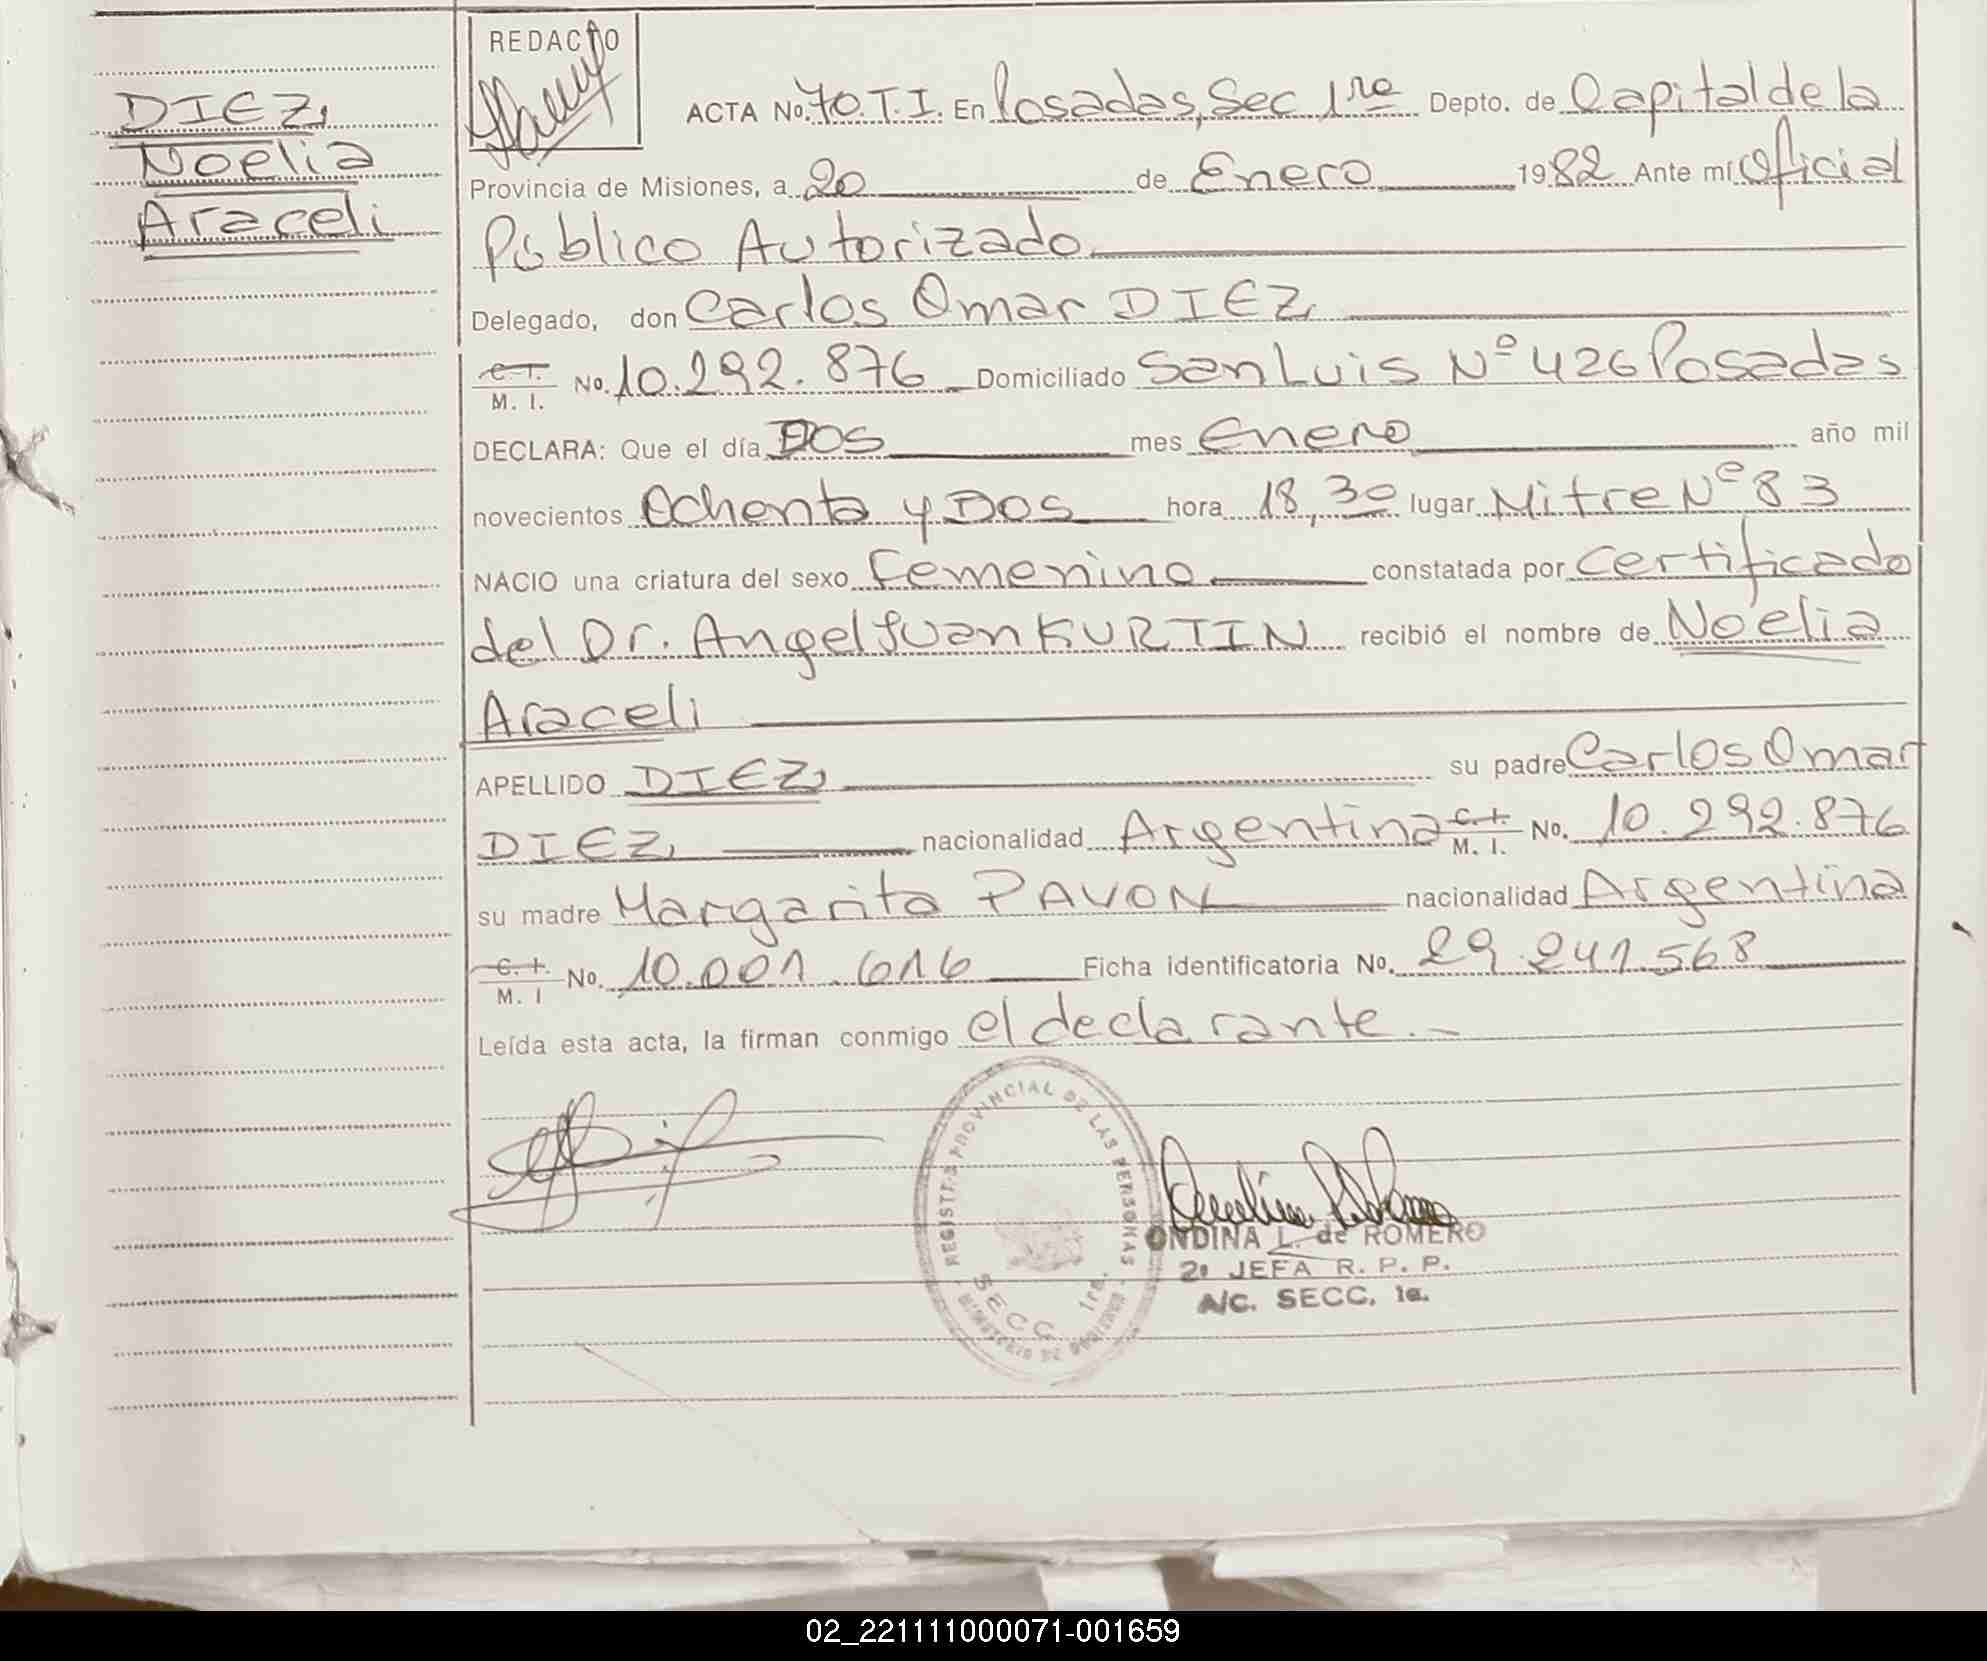 REDACTO
DIEZ,
Noelia
Araceli
ACTA No. 70.T.I. En Posadas, Sec 1ra Depto. de Capital de la
Provincia de Misiones, a 20 de Enero 1982 Ante mí Oficial
Público Autorizado
Delegado, don Carlos Omar DIEZ,
C.I. M. I. No. 10.292.876 Domiciliado San Luis Nº 426 Posadas
DECLARA: Que el día DOS mes Enero año mil
novecientos Ochenta y Dos hora 18,30 lugar Mitre Nº 83
NACIO una criatura del sexo Femenino constatada por Certificado
del Dr. Angel Juan KURTIN recibió el nombre de Noelia
Araceli
APELLIDO DIEZ, su padre Carlos Omar
DIEZ, nacionalidad Argentina C.I. M. I. No. 10.292.876
su madre Margarita PAVON nacionalidad Argentina
C.I. M. I No. 10.001.616 Ficha identificatoria No. 29.241.568
Leída esta acta, la firman conmigo el declarante.-
REGISTRO PROVINCIAL DE LAS PERSONAS
SECC. 1ra.
MINISTERIO DE GOBIERNO
ONDINA L. de ROMERO
2a JEFA R. P. P.
A/C. SECC. 1a.
02_221111000071-001659